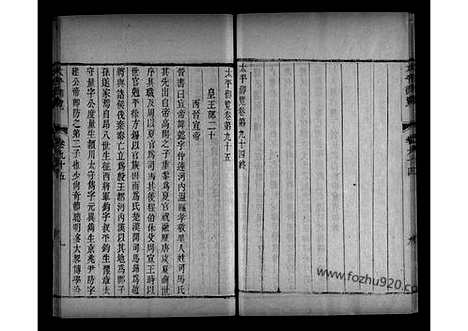 太平御覽卷第九十四終
太平御覽卷第九十五
皇王部二十
西晉宣帝
晉書曰宣帝諱懿字仲達河內溫人姓司馬氏
其先出自帝高陽之子重黎為夏官祝融歷唐虞夏商
世序其職及周以夏官為司馬其後程伯休父周宣王時以
世官克平徐方錫以官族因而為氏楚漢間司馬卬為
趙將與諸侯伐秦秦亡立為殷王都河內漢以其地為郡子
孫遂家焉自卬八世生征西將軍鈞字叔平鈞生豫章太
守量字公度量生潁川太守儁字元異儁生京兆尹防字
建公帝即防之第二子也少有奇節聰明多大略博學洽
www.fozhu920.com